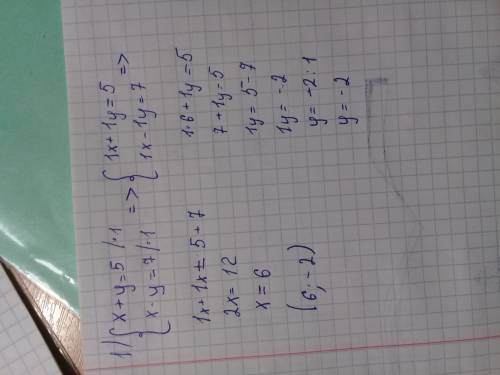 1) { x+y=5 /·1 => { 1x+1y=5 =>
{ x-y=7 /·1 { 1x-1y=7
1x+1x=5+7
2x=12
x=6
(6; -2)
1·6+1y=5
7+1y=5
1y=5-7
1y=-2
y=-2:1
y=-2